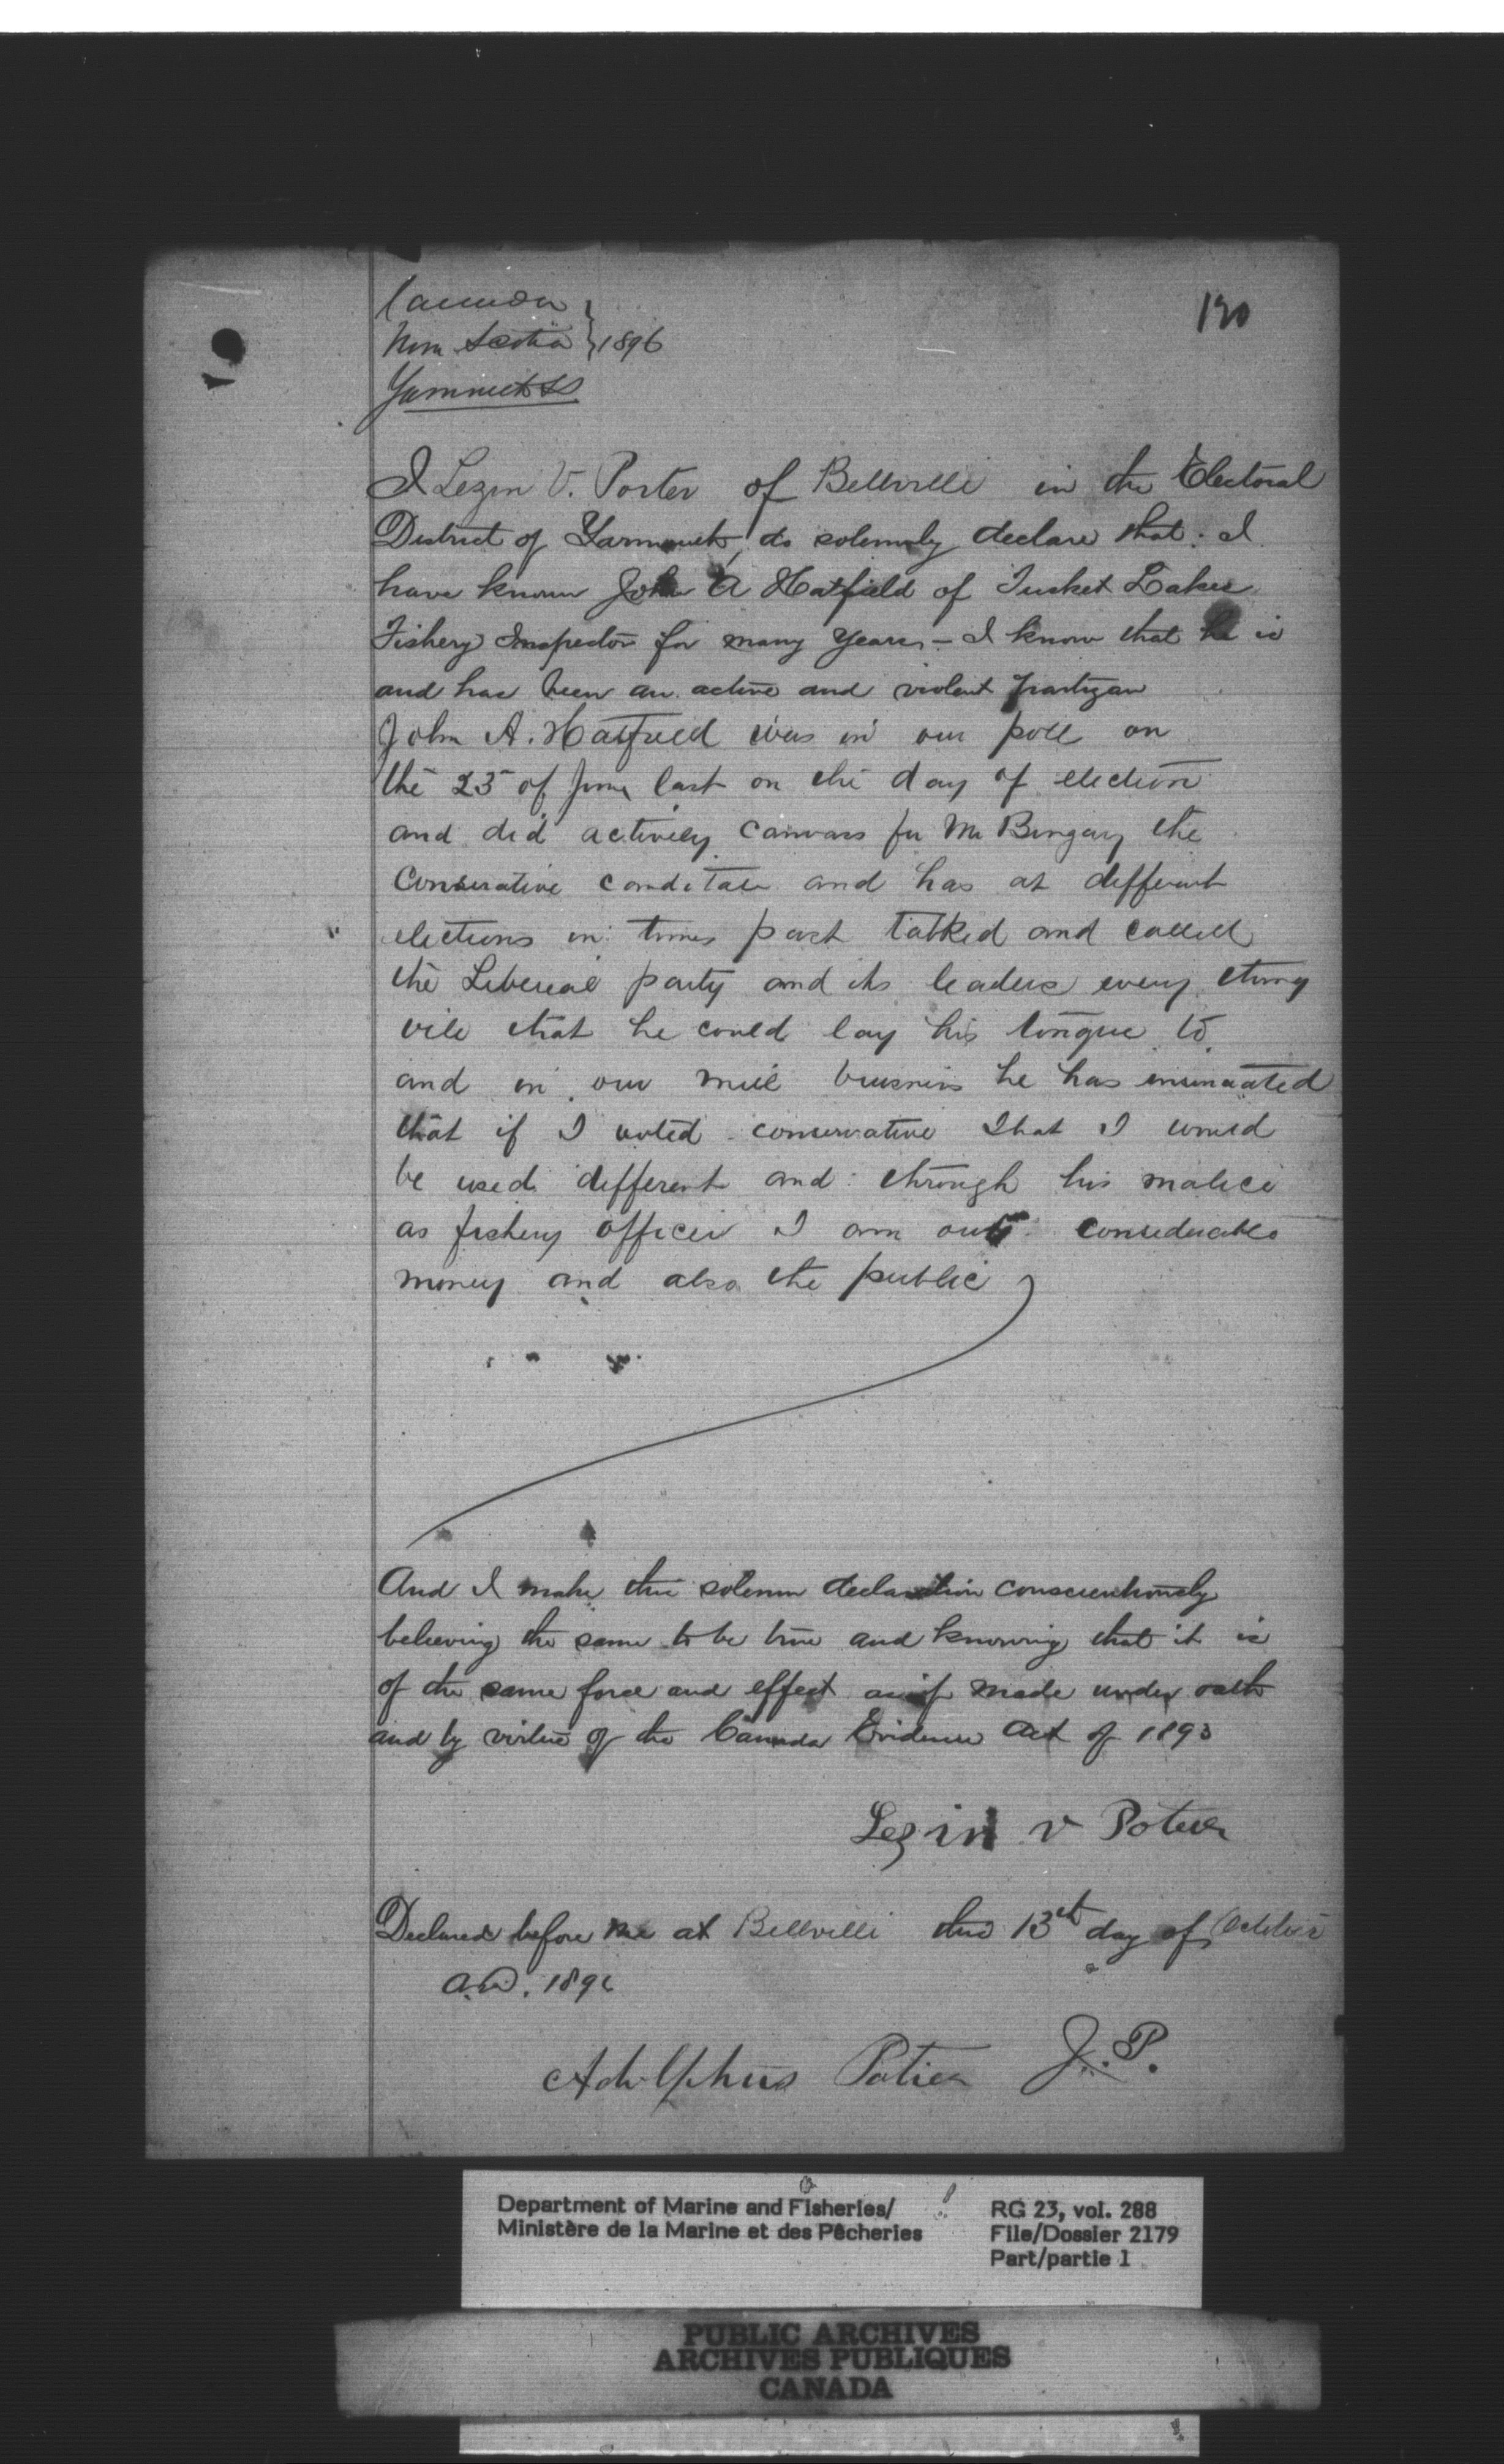 Canada
Nova Scotia } 1896
Yarmouth SS
130
I Lezin V. Porter of Bellville in the Electoral
District of Yarmouth, do solemnly declare that: I
have known John A Hatfield of Tusket Lakes
Fishery Inspector for many years - I know that he is
and has been an active and violent partizan
John A. Hatfield was in our poll on
the 23 of June last on the day of election
and did actively canvass for Mr Bingay the
Conservative canditate and has at different
elections in times past talked and called
the Libereal party and its leaders every thing
vile that he could lay his tongue to
and in our mill buisness he has insinuated
that if I voted conservative that I would
be used different and through his malice
as fishery officer I am out considerable
money and also the public
And I make this solemn declaration conscientiously
believing the same to be true and knowing that it is
of the same force and effect as if made under oath
and by virtue of the Canada Evidence Act of 1893
Lezin v Potier
Declared before me at Bellville this 13th day of October
A.D. 1896
Adolphus Potier J.P.
Department of Marine and Fisheries/
Ministère de la Marine et des Pêcheries
RG 23, vol. 288
File/Dossier 2179
Part/partie 1
PUBLIC ARCHIVES
ARCHIVES PUBLIQUES
CANADA